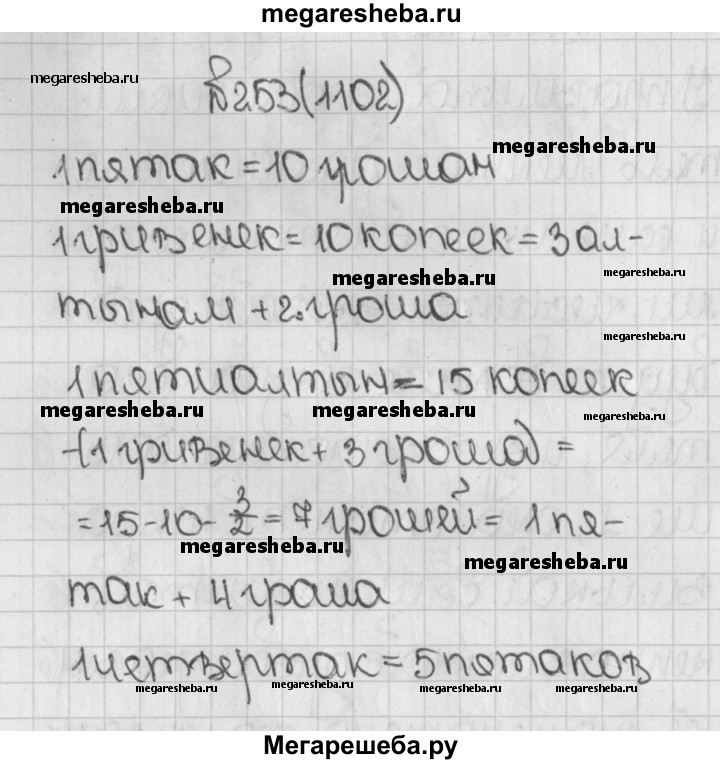 megaresheba.ru
megaresheba.ru
№253(1102)
megaresheba.ru
1 пятак = 10 грошам
megaresheba.ru
1 гривенек = 10 копеек = 3 ал-
megaresheba.ru
megaresheba.ru
тынам + 2 гроша
megaresheba.ru
1 пятиалтын = 15 копеек
megaresheba.ru
megaresheba.ru
megaresheba.ru
-(1 гривенек + 3 гроша) =
= 15 - 10 - 3/2 = 7 грошей = 1 пя-
megaresheba.ru
megaresheba.ru
так + 4 гроша
1 четвертак = 5 пятаков
megaresheba.ru
megaresheba.ru
megaresheba.ru
megaresheba.ru
Мегарешеба.ру